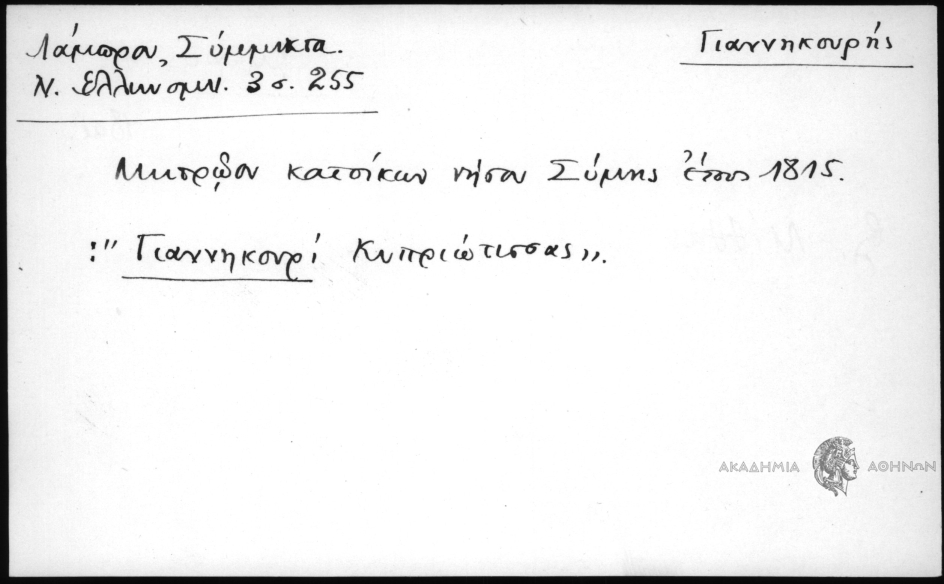 Λάμπρου, Σύμμικτα.
Γιαννηκουρής
Ν. Ελληνομν. 3 σ. 255
Μητρῷον κατοίκων νήσου Σύμης ἔτους 1815.
:" Γιαννηκουρί Κυπριώτισσας".
ΑΚΑΔΗΜΙΑ ΑΘΗΝΩΝ